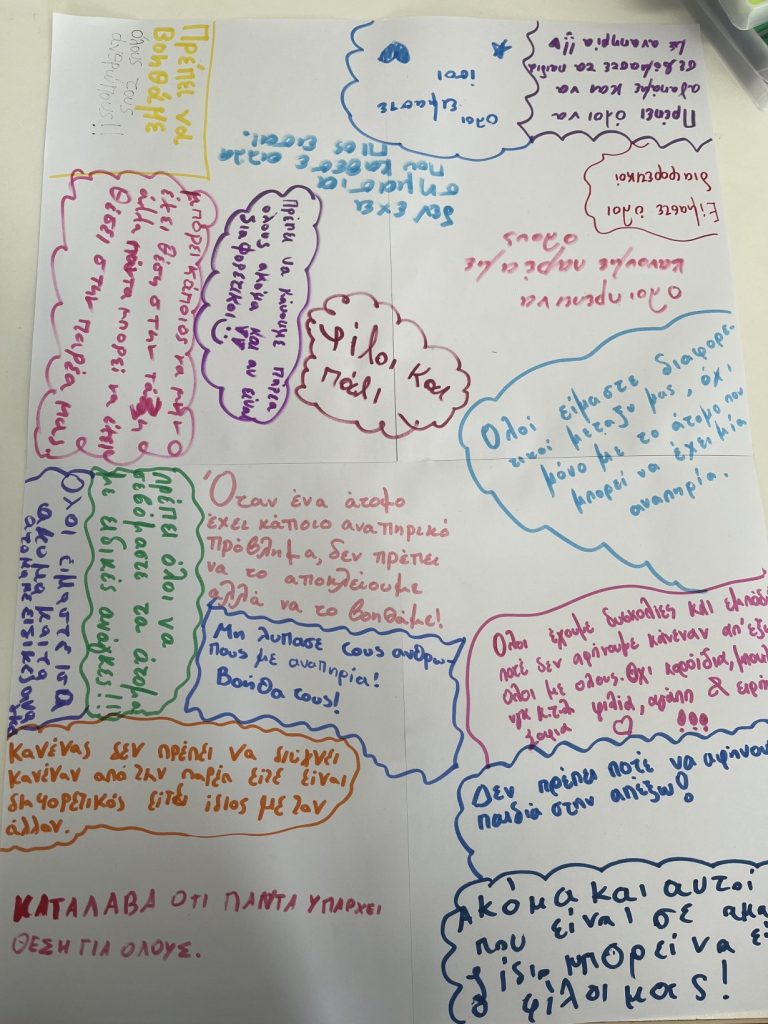 Πρέπει να
Βοηθάμε
όλους τους
ανθρώπους!!
όλοι
είμαστε
ίσοι
Πρέπει όλοι να
αγαπάμε και να
σεβόμαστε τα παιδιά
με αναπηρία!!
Είμαστε όλοι
διαφορετικοί
δεν έχει
σημασία
που καθέσε αλλα
πιος εισαι.
Ολοι πρεπει να
κανουμε παρέα με
ολους
μπορεί κάποιος να μην
έχει θέση στην τάξη
άλλα πάντα μπορεί να έχει
θέσει στην παρέα μας.
Πρέπει να κάνουμε παρέα
όλους ακόμα και αν είναι
διαφορετικοί
φίλοι και
πάλι
Όλοι είμαστε διαφορε-
τικοί μεταξύ μας, όχι
μόνο με το άτομο που
μπορεί να έχει μία
αναπηρία.
Όλοι είμαστε ίσοι
ακόμα και τα
άτομα με ειδικές ανα
γκες
Πρέπει όλοι να
σεβόμαστε τα άτομα
με ειδικές ανάγκες!!!
Όταν ένα άτομο
έχει κάποιο αναπηρικό
πρόβλημα, δεν πρέπει
να το αποκλείουμε
αλλά να το βοηθάμε!
Μη λυπάσε τους ανθρω-
πους με αναπηρία!
Βοήθα τους!
Όλοι έχουμε δυσκολίες και εμπόδ
ποτέ δεν αφήνουμε κάνεναν απ' έξω
όλοι με όλους. Όχι κοροϊδία,
κτλ φιλία, αγάπη & ειρήν
!!!
Κανένας δεν πρέπει να διώχνει
κανέναν από την παρέα είτε είναι
διαφορετικός είτε ίδιος με τον
άλλον.
Δεν πρέπει ποτέ να αφήνου
παιδιά στην απέξω!
ΚΑΤΑΛΑΒΑ ΟΤΙ ΠΑΝΤΑ ΥΠΑΡΧΕΙ
ΘΕΣΗ ΓΙΑ ΟΛΟΥΣ.
Ακόμα και αυτοί
που είναι σε αμα
ξίδιο μπορεί να εί
φίλοι μας!